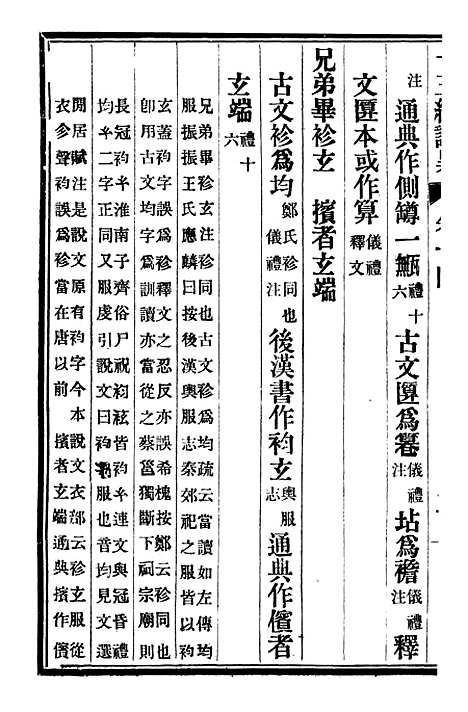 注通典作側罇一甒禮十六古文匴爲篹儀禮注坫爲襜儀禮注釋
文匴本或作算儀禮釋文
兄弟畢袗玄　擯者玄端
古文袗爲均鄭氏袗同也儀禮注後漢書作袀玄輿服志通典作儐者
玄端禮十六
兄弟畢袗玄注袗同也古文袗爲均疏云當讀如左傳均
服振振王氏應麟曰按後漢輿服志秦郊祀之服皆以袀
玄蓋袀字誤爲袗釋文之忍反亦誤希槐按鄭云袗同也
卽用古文均字爲袗訓讀亦當從之蔡邕獨斷下祠宗廟則
長冠袀玄淮南子齊俗尸祝袀袨皆袀玄連文與冠昏禮
均玄二字正同又服虔引說文曰袀服也音均見文選
閒居賦注是說文原有袀字今本說文衣部云袗玄服從
衣㐱聲袀誤爲袗當在唐以前　擯者玄端通典擯作儐